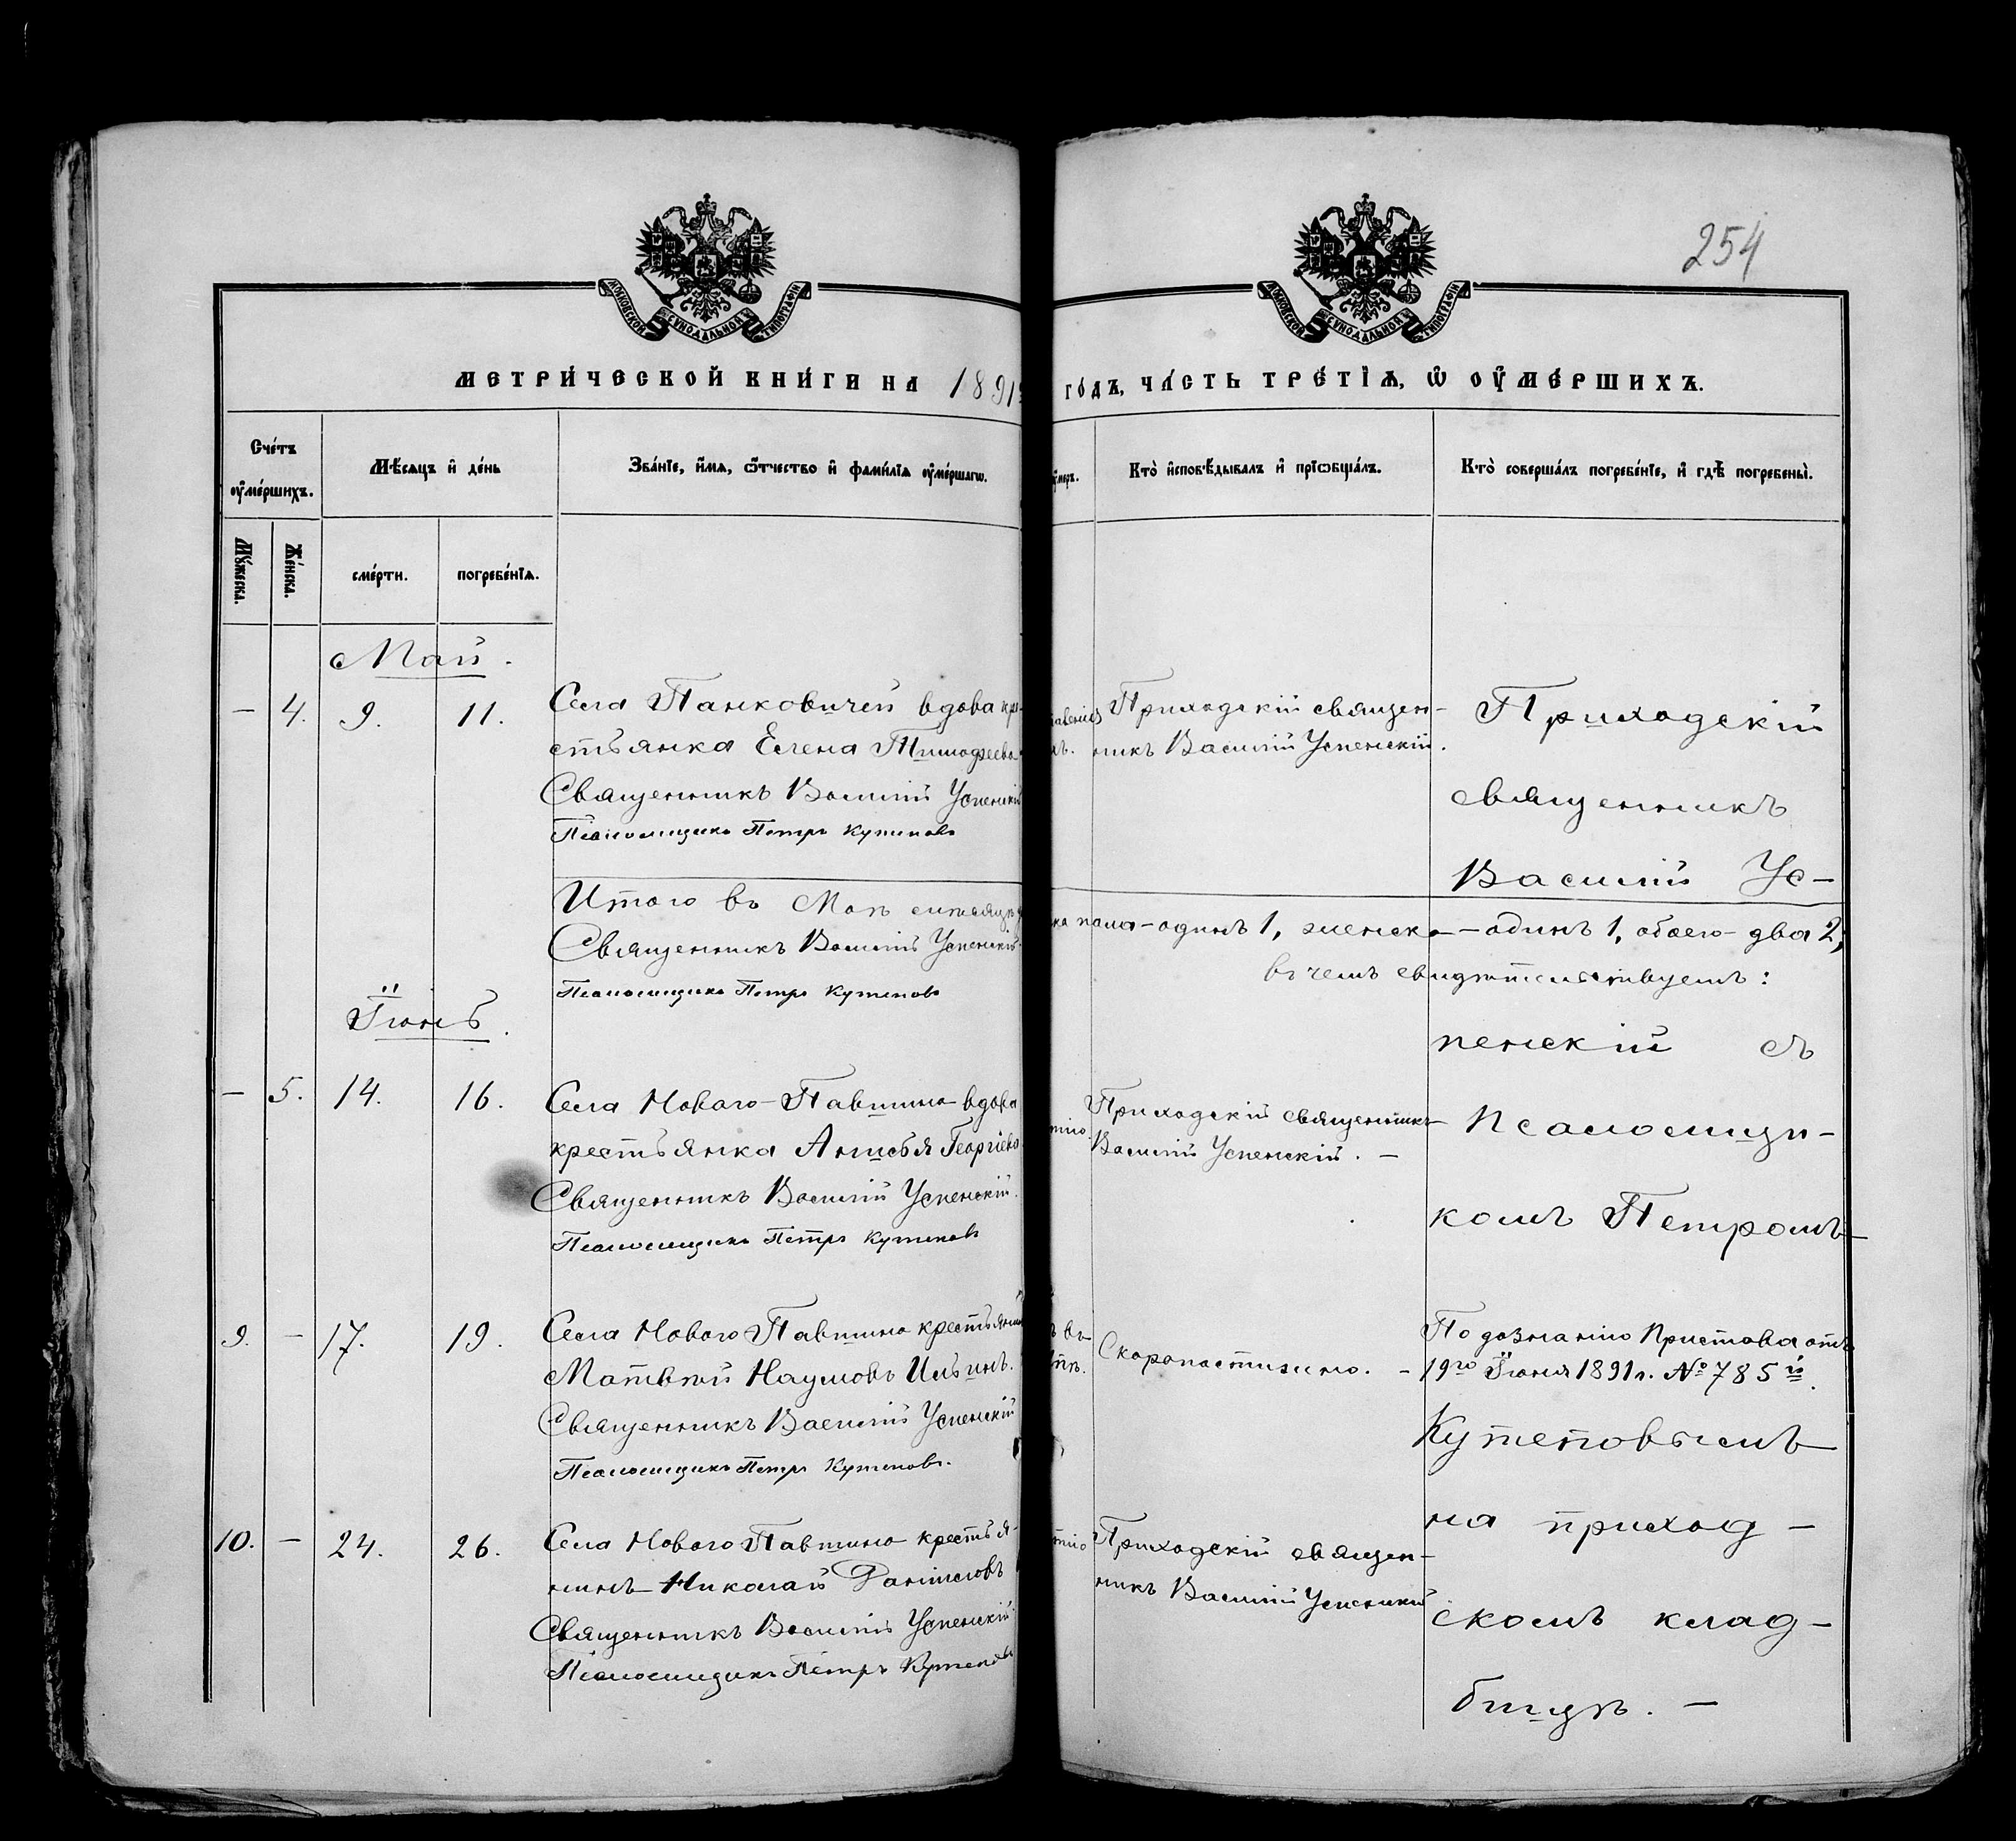 254
МОСКОВСКОЙ СѴНОДАЛЬНОЙ ТИПОГРАФІИ
МОСКОВСКОЙ СѴНОДАЛЬНОЙ ТИПОГРАФІИ
МЕТРИ́ЧЕСКОЙ КНИ́ГИ НА 1891
ГО́ДЪ, ЧА́СТЬ ТРЕ́ТІѦ, Ѡ҆ ОУ҆МЕ́РШИХЪ.
Сче́тъ оу҆ме́ршихъ.
Мꙋ́жеска.
Же́нска.
Мѣ́сѧцъ и҆ де́нь
сме́рти.
погребе́нїѧ.
Зва́нїе, и҆́мѧ, ѻ҆́тчество и҆ фами́лїѧ оу҆ме́ршагѡ.
Кто̀ и҆сповѣ́дывалъ и҆ прїѡбща́лъ.
Кто̀ соверша́лъ погребе́нїе, и҆ гдѣ̀ погребены̀.
Май.
– 4. 9. 11.
Села Панковичей вдова кре-
стьянка Елена Тимофеева
Священникъ Василій Успенскій
Псаломщикъ Петръ Кутеповъ
Приходскій священ-
никъ Василій Успенскій.
Приходскій
священникъ
Василій Ус-
Итого въ Маѣ мѣсяцѣ
пола – одинъ 1, женска – одинъ 1, обоего – два 2,
Священникъ Василій Успенскій
въ чемъ свидѣтельствуемъ:
Псаломщикъ Петръ Кутеповъ
Іюнь.
– 5. 14. 16.
Села Новаго-Павшино вдова
крестьянка Анисья Георгіева
Священникъ Василій Успенскій.
Псаломщикъ Петръ Кутеповъ
Приходскій священникъ
Василій Успенскій. –
пенскій съ
псаломщи-
комъ Петромъ
9. – 17. 19.
Села Новаго Павшино крестьянинъ
Матвѣй Наумовъ Ильинъ.
Священникъ Василій Успенскій
Псаломщикъ Петръ Кутеповъ.
Скоропостижно. –
По дознанію Пристава отъ
19го Іюня 1891 г. № 785й.
Кутеповымъ
10. – 24. 26.
Села Новаго Павшино крестья-
нинъ Николай Даниловъ
Священникъ Василій Успенскій
Псаломщикъ Петръ Кутеповъ
Приходскій священ-
никъ Василій Успенскій
на приход-
скомъ клад-
бищѣ. –